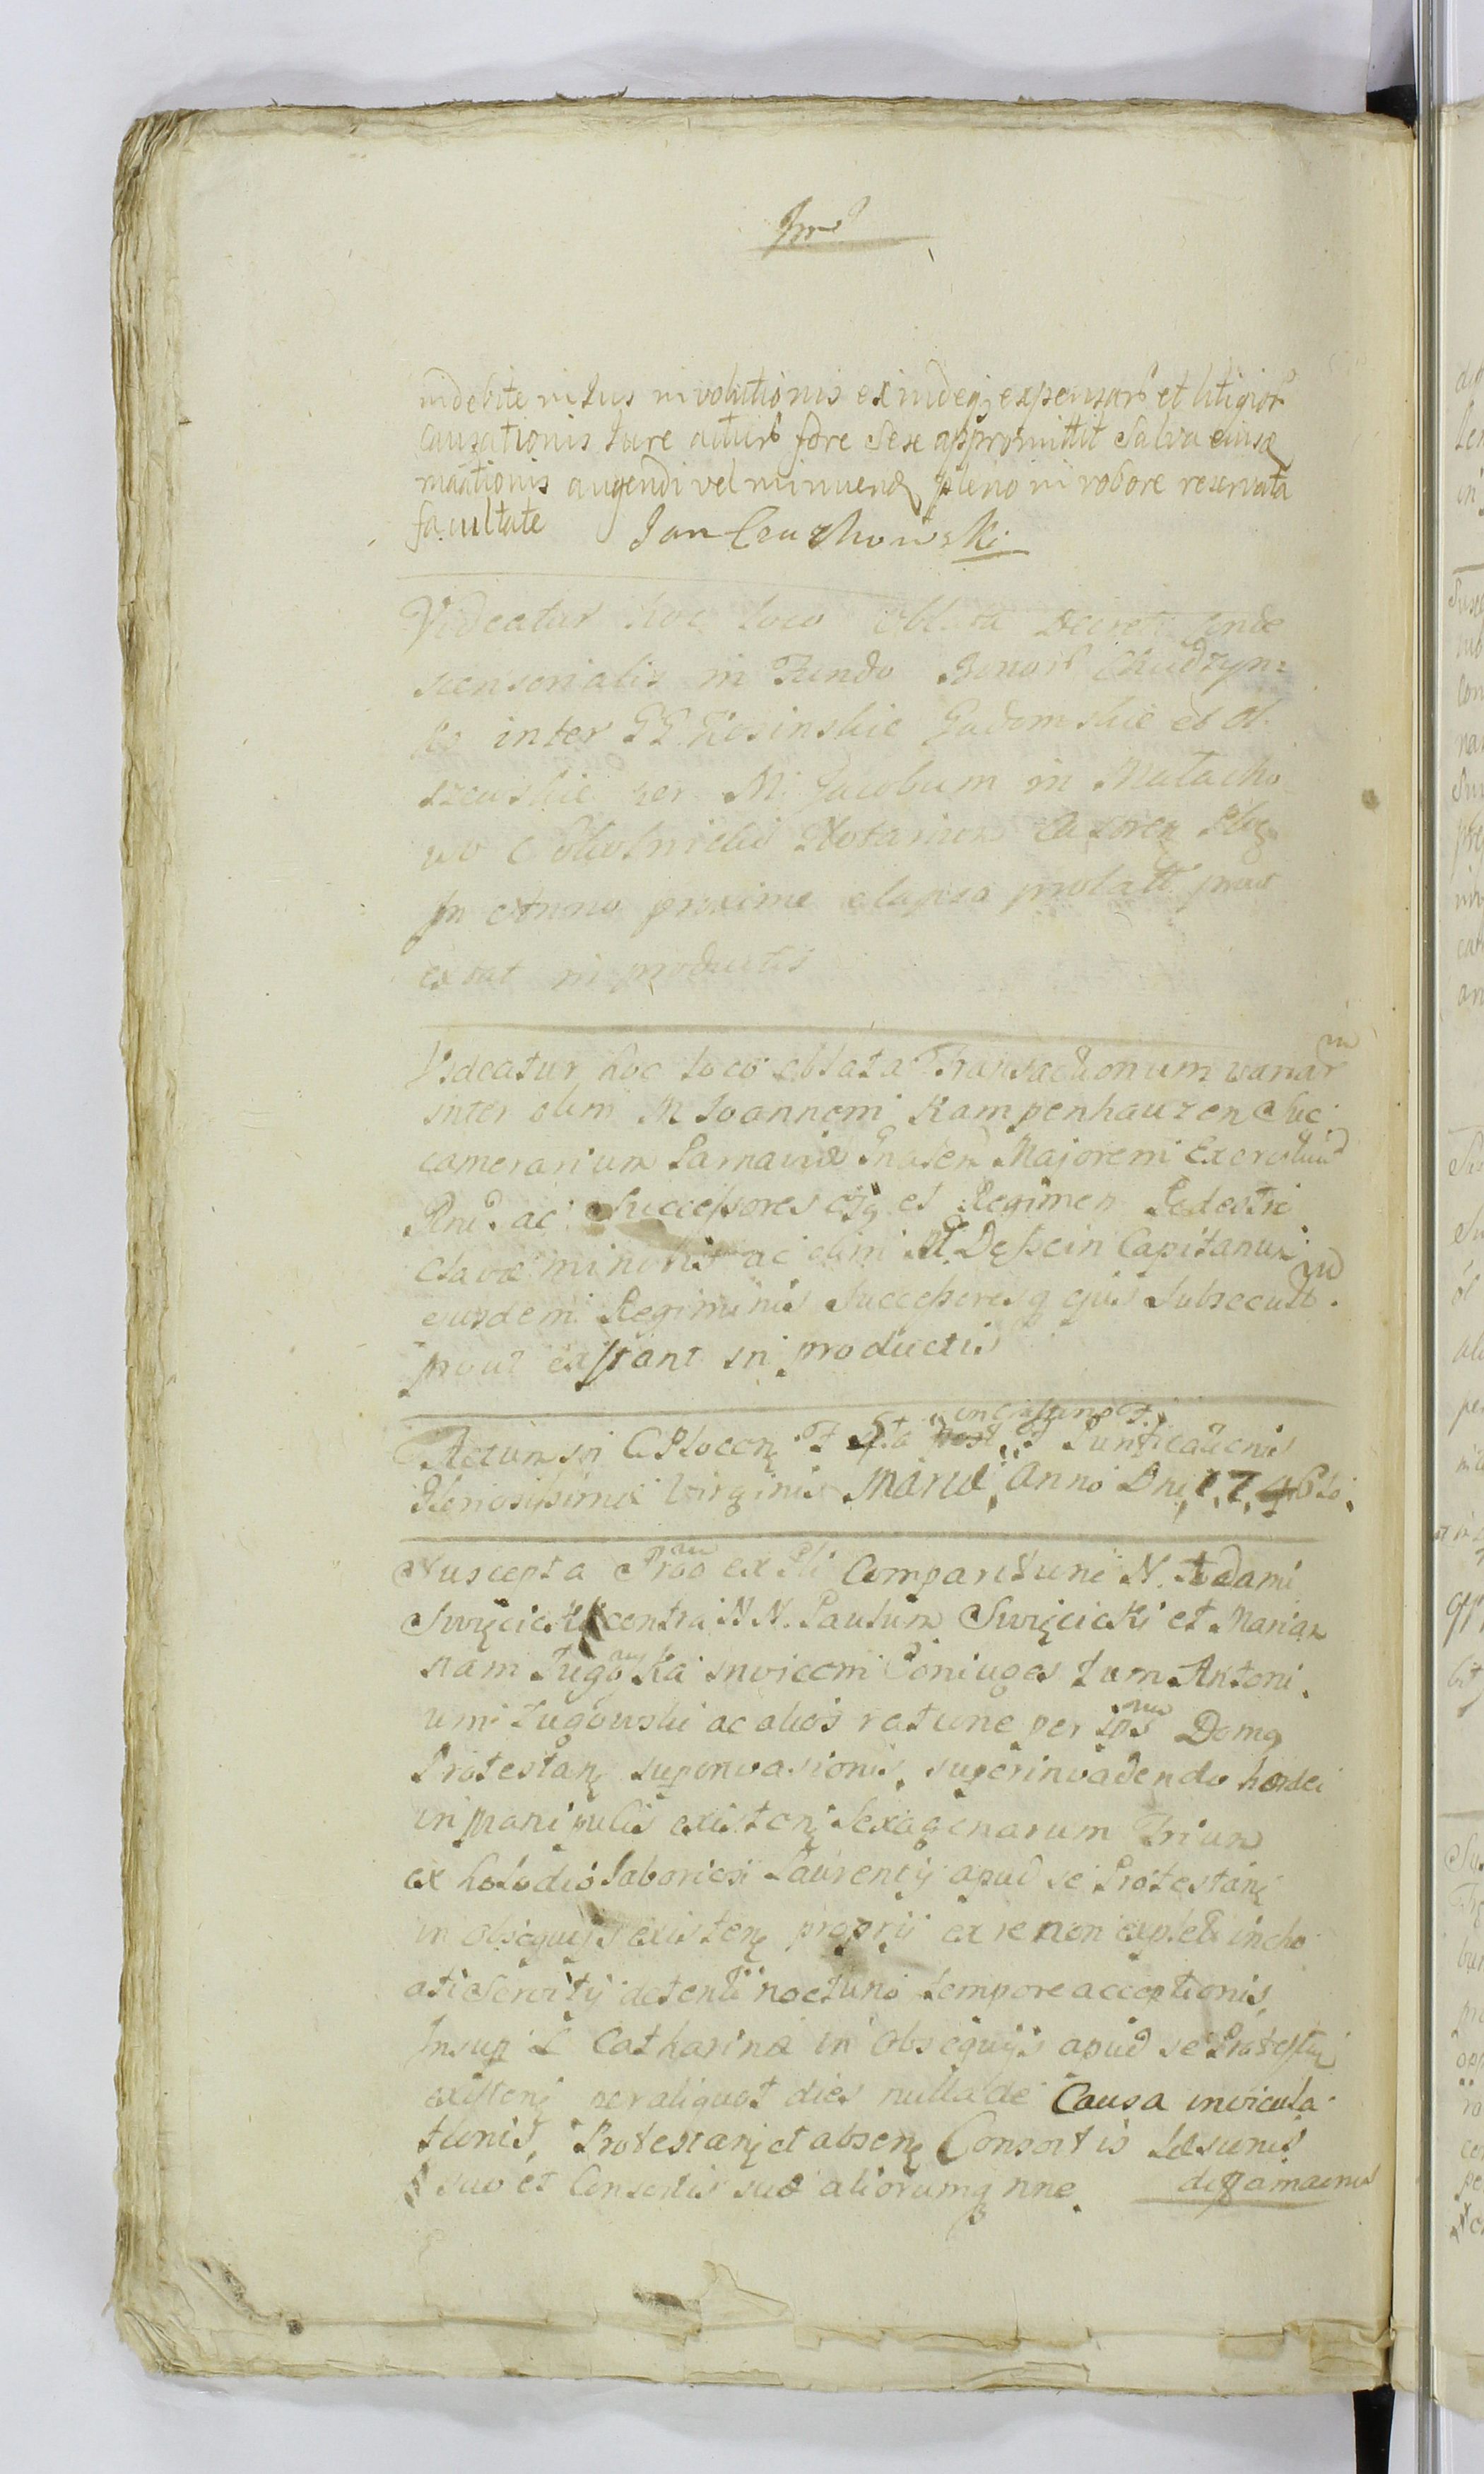 indebite in Jus involutionis exindeq expensar et litigior
causationis Jure actur fore sese appromittit salva eiusq
mãationis augendi vel minuendq pleno in robore reservata
facultate Jan
Videatur hoc loco oblata Decreti Conde
scensorialis in Fundo Bonor Chudzyn=
inter GG. Kosinskie Gadomskie et Ol
szewskie per M. Jacobum in Małacho
wo Notarium Castren Ploc
in Anno proxime elapso prolati prout
extat in productis
Videatur hoc loco oblata Transactionum variar
inter olim M Joannem Kampenhauzen Suc
camerarium Parnaviæ Majorem Exercituu
Rni ac Successores ejq et Regimen Pedestre
Clavæ minoris ac olim M. Deßein Capitanum
eiusdem Regiminis Successoresq ejus subsecut.
prout exstant in productis
Actum in C Plocen F 5ta in Crastino F. Purificãoenis
Gloriosissimæ Virginis Mariæ, Anno Dni, 1746to.
Suscepta Prao ex Pli Comparitione N. Adami
Swięcicki contra NN. Paulum Swięcicki et Marian
nam Zugowska invicem Coniuges tum Antoni
um Zugowski ac alios ratione per ipos Domq
Protestanę superinvasionis, superinvadendo hordei
in manipulis existenę sexagenarum Trium
ex laboriosi Laurentij apud se Protestanę
in obsequijs existenę proprij ex re non expleti incho
ati Servitij detenti nocturno tempore acceptionis,
Insup L Catharinæ in obsequijs apud se Protestanę
existenę per aliquot dies nulla de Causa invicula
tionis, Protestanę et absenę Consortis læsionis
suo et Consortis suæ aliorumq nne. diffamaonis